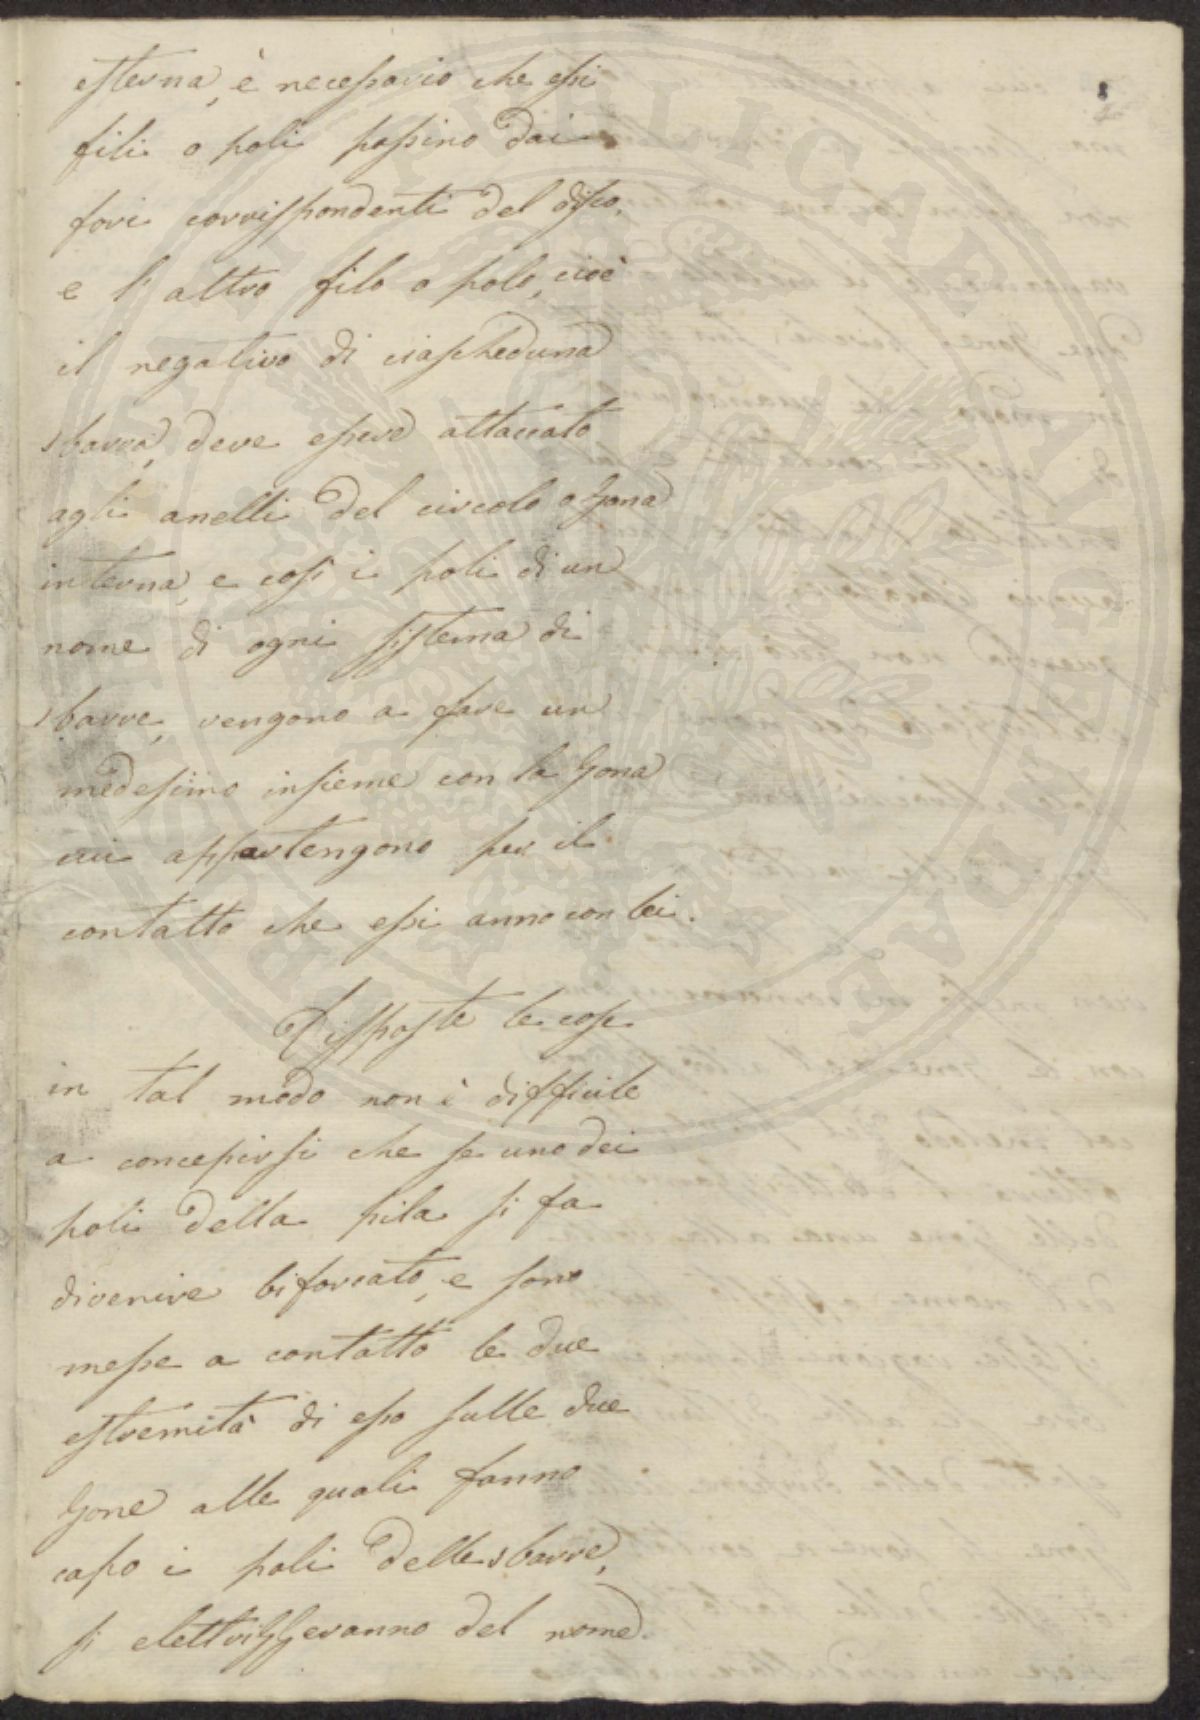 8
esterna, è necessario che essi
fili o poli passino dai
fori corrispondenti del disco,
e l'altro filo o polo, cioè
il negativo di ciascheduna
sbarra, deve essere attaccato
agli anelli del circolo o zona
interna, e così i poli di un
nome di ogni sistema di
sbarre, vengono a fare un
medesimo insieme con la zona
cui appartengono per il
contatto che essi anno con lei.
Disposte le cose
in tal modo non è difficile
a concepirsi che se uno dei
poli della pila si fa
divenire biforcato, e sono
messe a contatto le due
estremità di esso sulle due
zone alle quali fanno
capo i poli delle sbarre,
si elettrizzeranno del nome